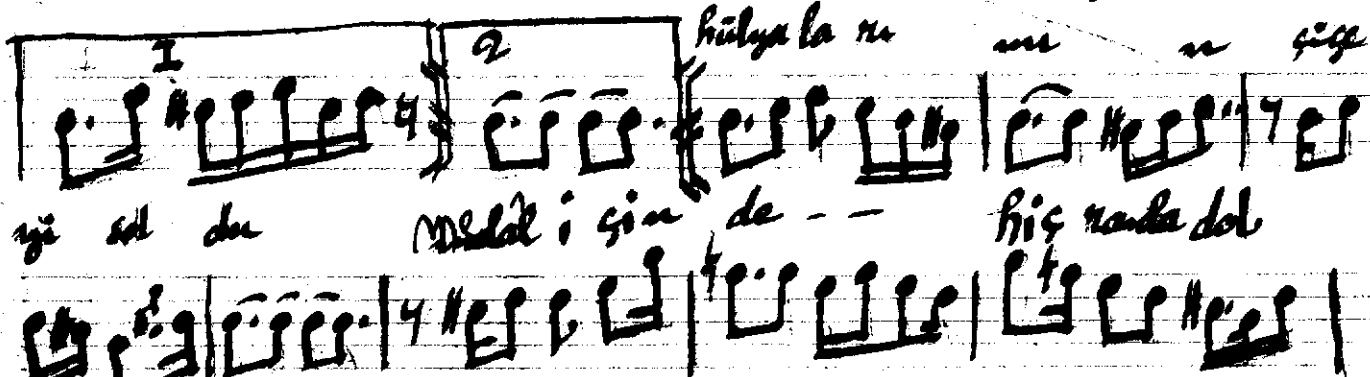 1 2 hülya la rı mı n çiçe
yi sol du Melâl i çin de - - hiç